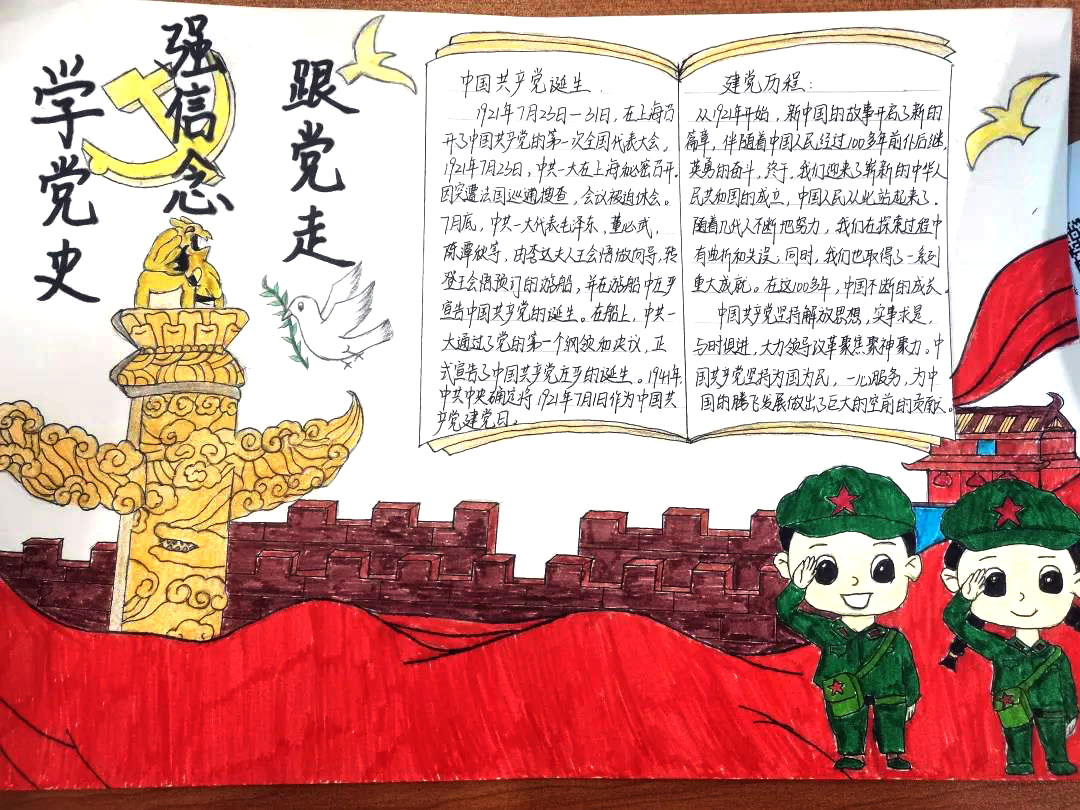 学党史
强信念
跟党走
中国共产党诞生
1921年7月23日—31日,在上海召
开了中国共产党的第一次全国代表大会,
1921年7月23日,中共一大在上海秘密召开.
因突遭法国巡逋搜查,会议被迫休会。
7月底,中共一大代表毛泽东,董必武,
陈潭秋等,由李达夫人王会悟做向导,转
登王会悟预订的游船,并在游船中庄严
宣告中国共产党的诞生。在船上,中共一
大通过了党的第一个纲领和决议,正
式宣告了中国共产党庄严的诞生。1941年,
中共中央确定将1921年7月1日作为中国共
产党建党日。
建党历程:
从1921年开始,新中国的故事开启了新的
篇章,伴随着中国人民经过100多年前仆后继,
英勇的奋斗。终于,我们迎来了崭新的中华人
民共和国的成立,中国人民从此站起来了.
随着几代人不断地努力,我们在探索过程中
有曲折和失误,同时,我们也取得了一系列
重大成就。在这100多年,中国不断的成长。
中国共产党坚持解放思想,实事求是,
与时俱进,大力领导改革聚焦聚神聚力。中
国共产党坚持为国为民,一心服务,为中
国的腾飞发展做出了巨大的空前的贡献。